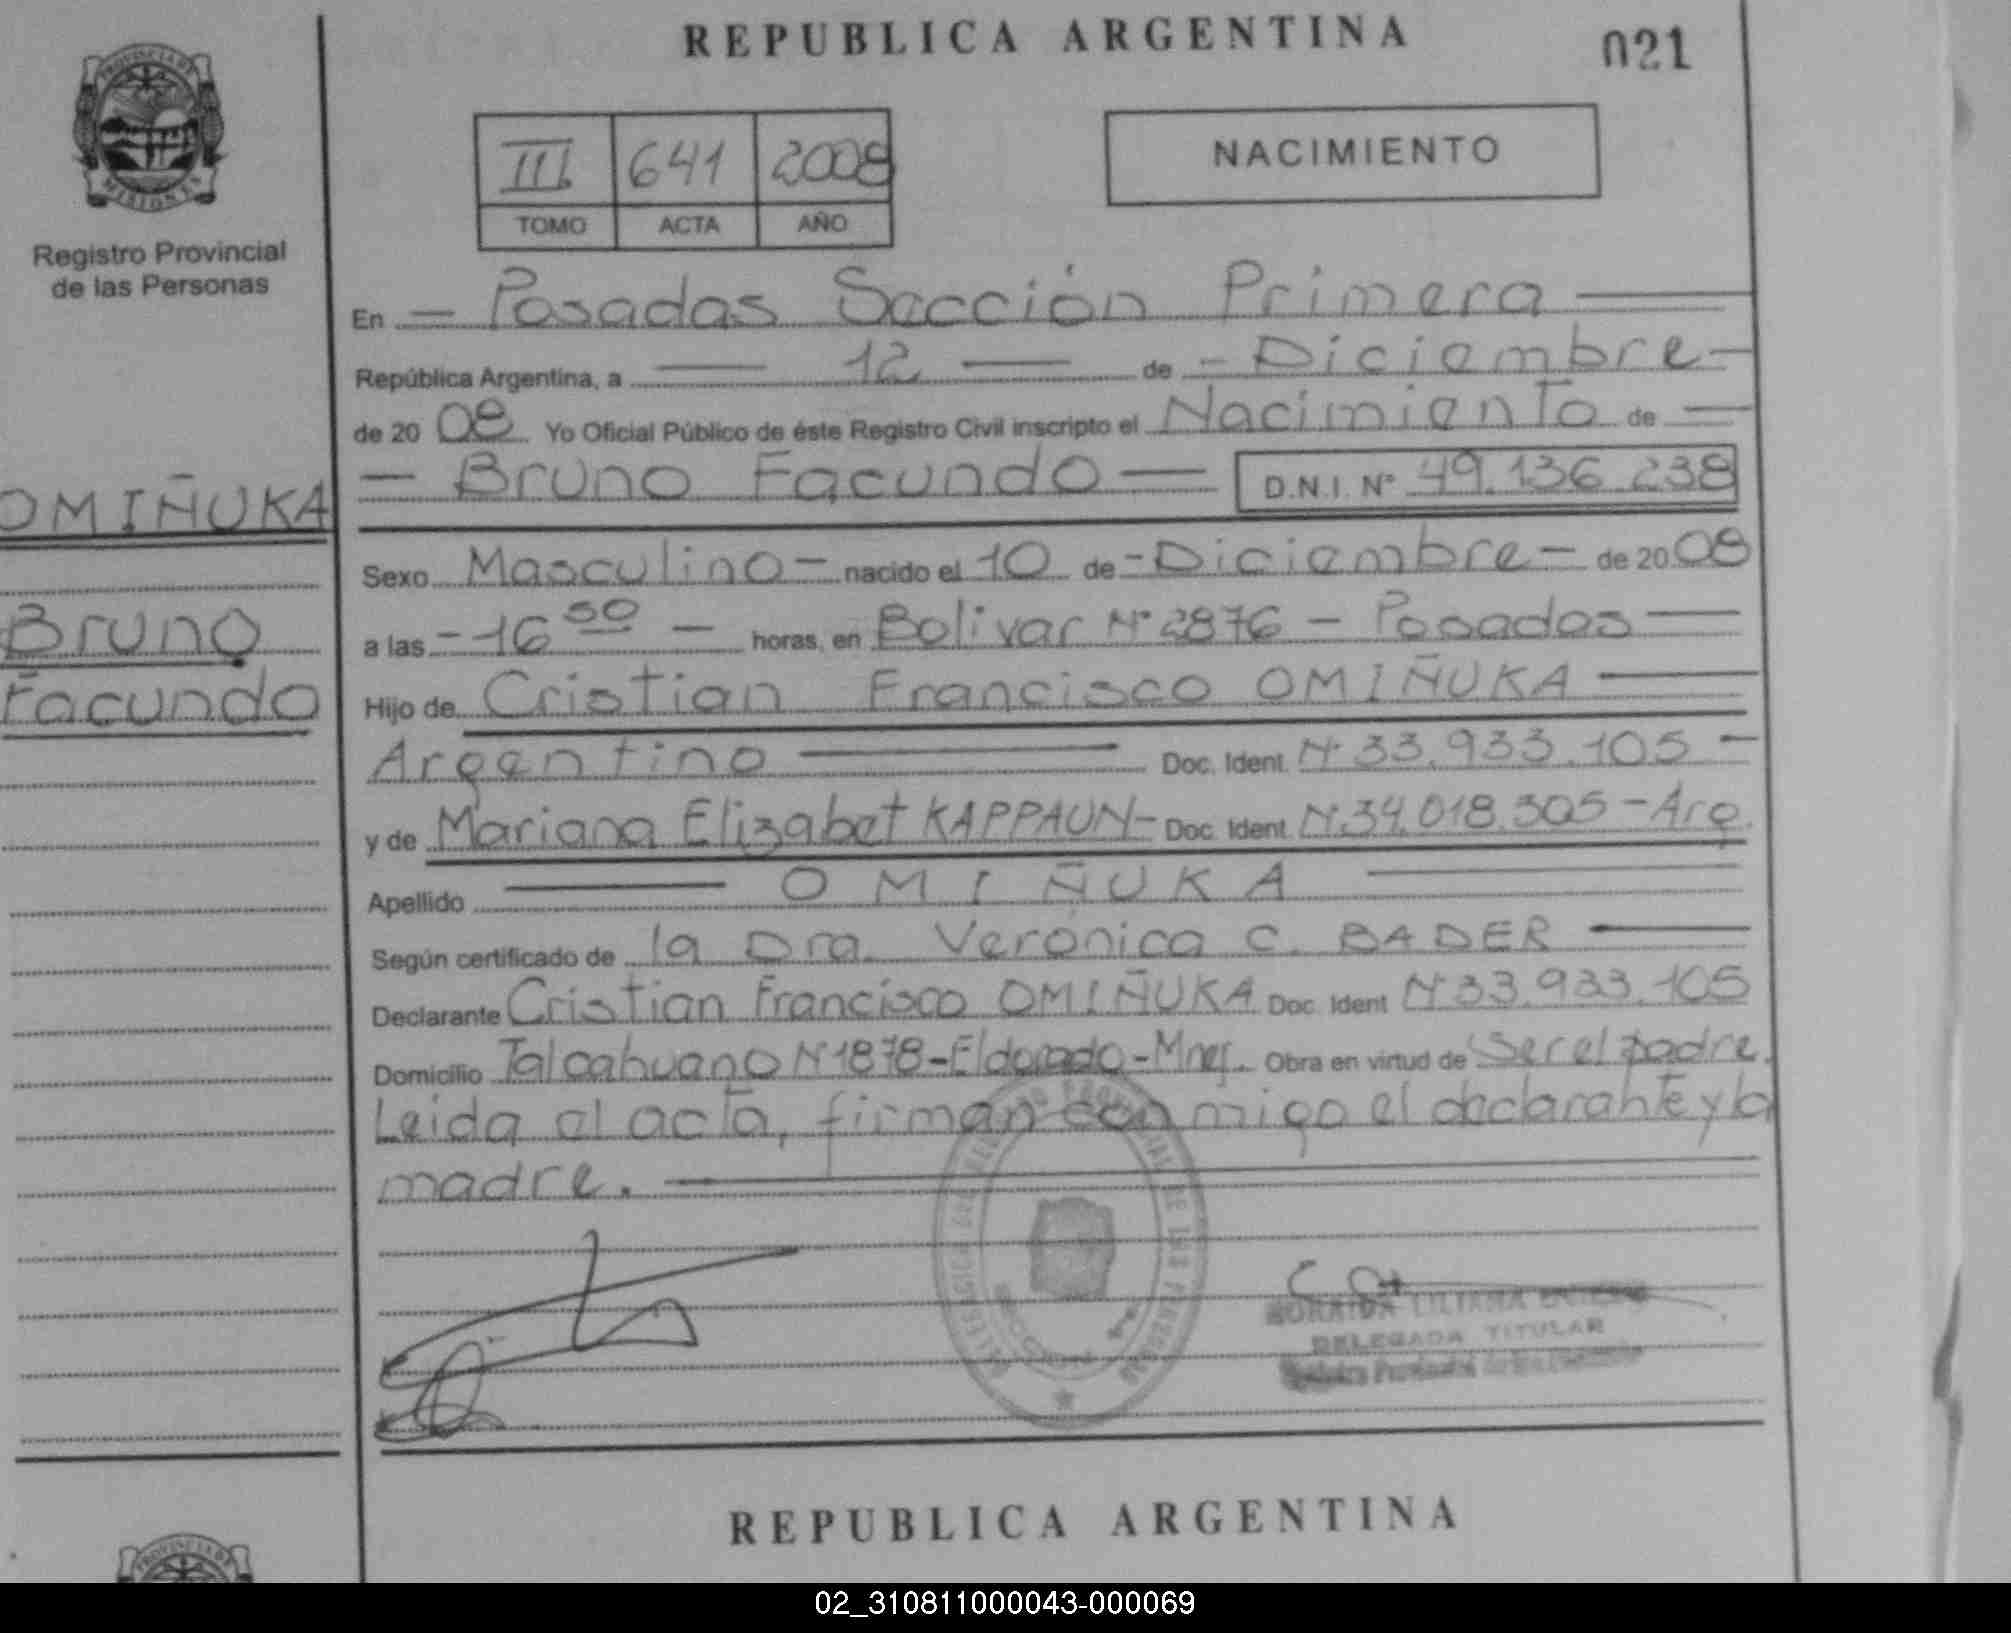 REPUBLICA ARGENTINA
021
PROVINCIA DE
MISIONES
Registro Provincial
de las Personas
III 641 2008
TOMO ACTA AÑO
NACIMIENTO
En — Posadas Sección Primera —
República Argentina, a — 12 — de - Diciembre -
de 20 08 Yo Oficial Público de éste Registro Civil inscripto el Nacimiento de —
— Bruno Facundo — D.N.I. Nº 49.136.238
OMIÑUKA
Bruno
Facundo
Sexo Masculino - nacido el 10 de - Diciembre - de 20 08
a las - 16 50 - horas, en Bolivar Nº 2876 - Posadas —
Hijo de Cristian Francisco OMIÑUKA —
Argentino — Doc. Ident. Nº 33.933.105 -
y de Mariana Elizabet KAPPAUN - Doc. Ident. Nº 34.018.305 - Arg.
Apellido — OMIÑUKA —
Según certificado de la Dra. Verónica C. BADER —
Declarante Cristian Francisco OMIÑUKA Doc. Ident Nº 33.933.105
Domicilio Talcahuano Nº 1878 - Eldorado - Mnes. Obra en virtud de Ser el padre.
Leida el acta, firman conmigo el declarante y la
madre. —
LILIANA
DELEGADA TITULAR
REPUBLICA ARGENTINA
PROVINCIA DE
02_310811000043-000069